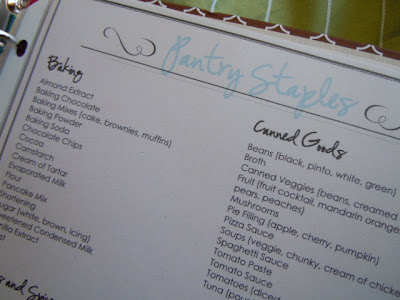 Pantry Staples
Baking
Almond Extract
Baking Chocolate
Baking Mixes (cake, brownies, muffins)
Baking Powder
Baking Soda
Chocolate Chips
Cocoa
Cornstarch
Cream of Tartar
Evaporated Milk
Flour
Pancake Mix
Shortening
ugar (white, brown, icing)
weetened Condensed Milk
nilla Extract
st
s and Spic
Canned Goods
Beans (black, pinto, white, green)
Broth
Canned Veggies (beans, creamed
Fruit (fruit cocktail, mandarin orange
pears, peaches)
Mushrooms
Pie Filling (apple, cherry, pumpkin)
Pizza Sauce
Soups (veggie, chunky, cream of chicke
Spaghetti Sauce
Tomato Paste
Tomato Sauce
Tomatoes (diced
Tuna (pou